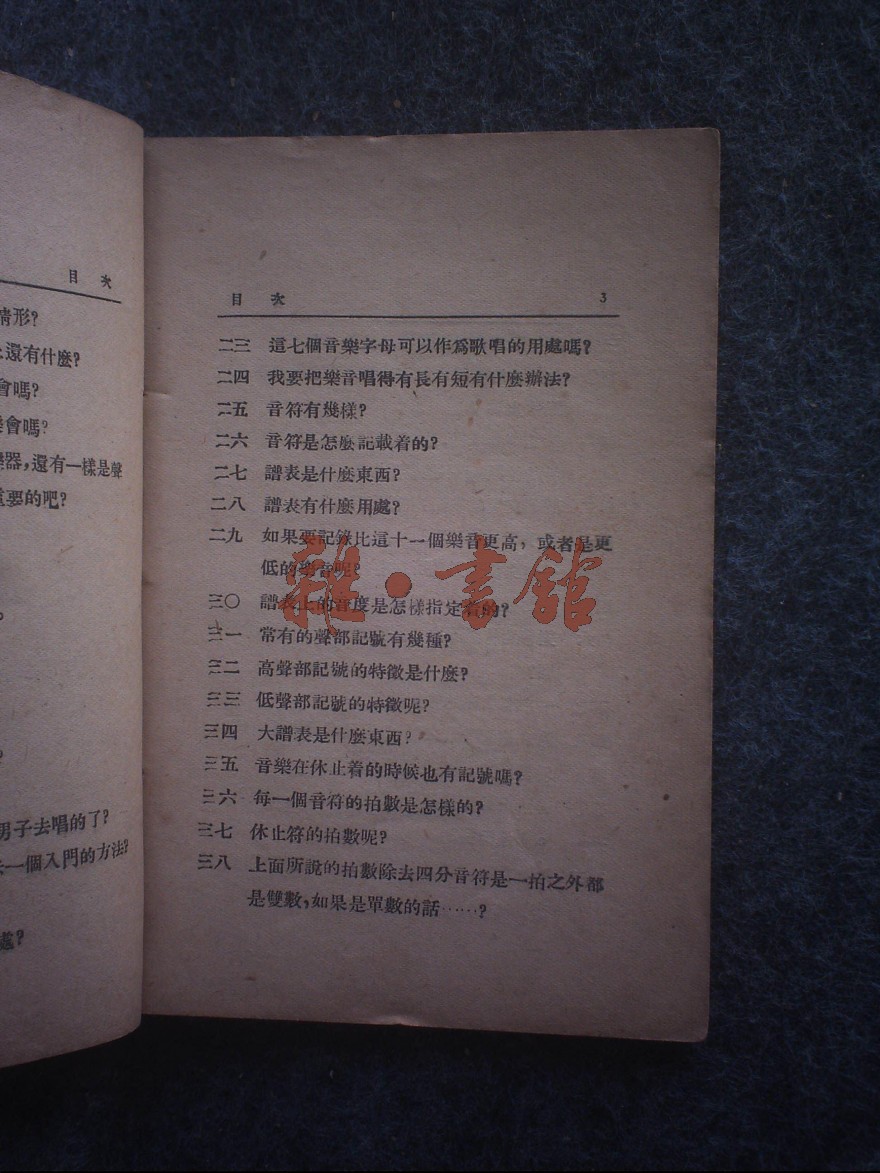 目 次
情形?
還有什麼?
會嗎?
會嗎?
器,還有一樣是聲
重要的吧?
男子去唱的了?
一個入門的方法?
處?
目 次 3
二三 這七個音樂字母可以作爲歌唱的用處嗎?
二四 我要把樂音唱得有長有短有什麼辦法?
二五 音符有幾樣?
二六 音符是怎麼記載着的?
二七 譜表是什麼東西?
二八 譜表有什麼用處?
二九 如果要記錄比這十一個樂音更高,或者是更
低的樂音呢?
三〇 譜表上的音度是怎樣指定着的?
三一 常有的聲部記號有幾種?
三二 高聲部記號的特徵是什麼?
三三 低聲部記號的特徵呢?
三四 大譜表是什麼東西?
三五 音樂在休止着的時候也有記號嗎?
三六 每一個音符的拍數是怎樣的?
三七 休止符的拍數呢?
三八 上面所說的拍數除去四分音符是一拍之外都
是雙數,如果是單數的話……?
雜·書館